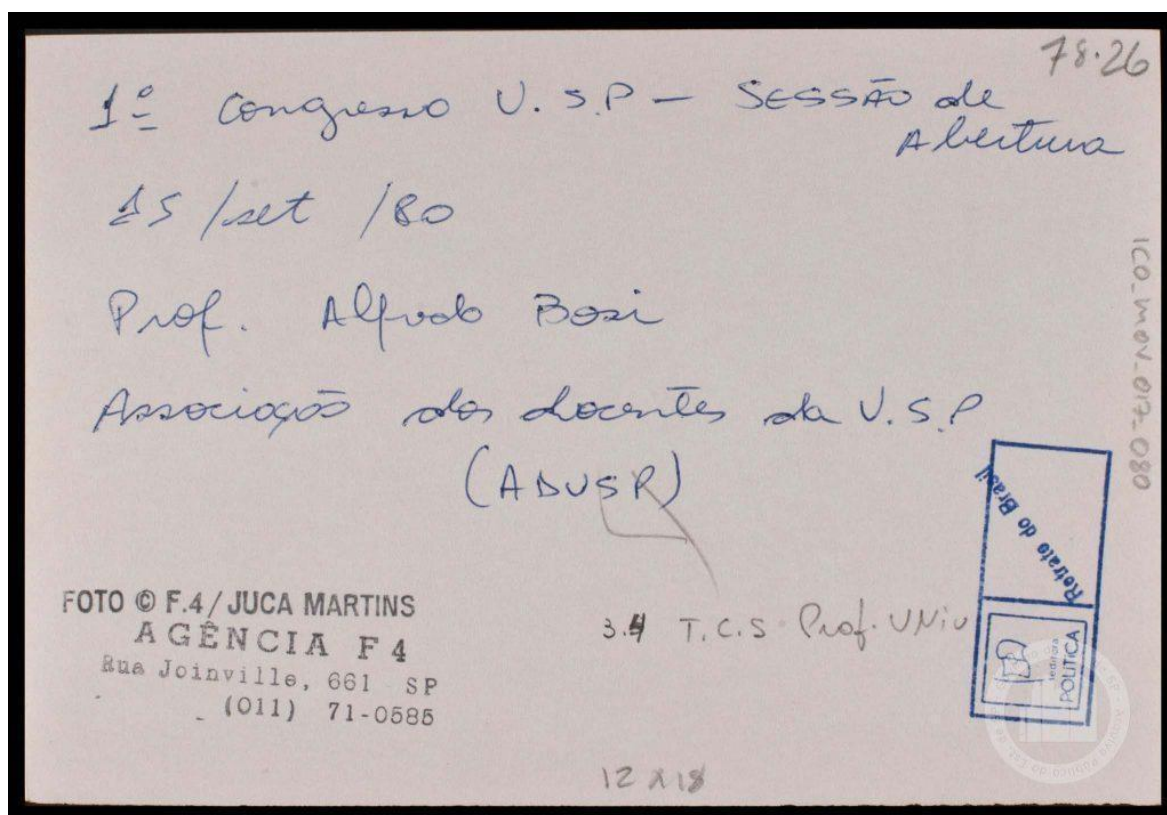 78.26
1º Congresso U.S.P – SESSÃO de
Abertura
15/set/80
Prof. Alfredo Bosi
Associação dos docentes da U.S.P
(ADUSP)
ICO_MOV_017-080
Retrato do Brasil
editora
POLÍTICA
FOTO © F.4/JUCA MARTINS
AGÊNCIA F4
Rua Joinville, 661 SP
(011) 71-0585
3.4 T.C.S Prof. UNiv
12 x 18